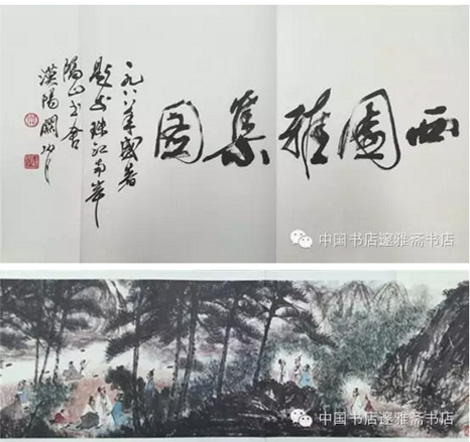 西園雅集圖
一九八八年盛暑
題於珠江南岸
隔山书舍
漠陽關山月
中国书店邃雅斋书店
中国书店邃雅斋书店